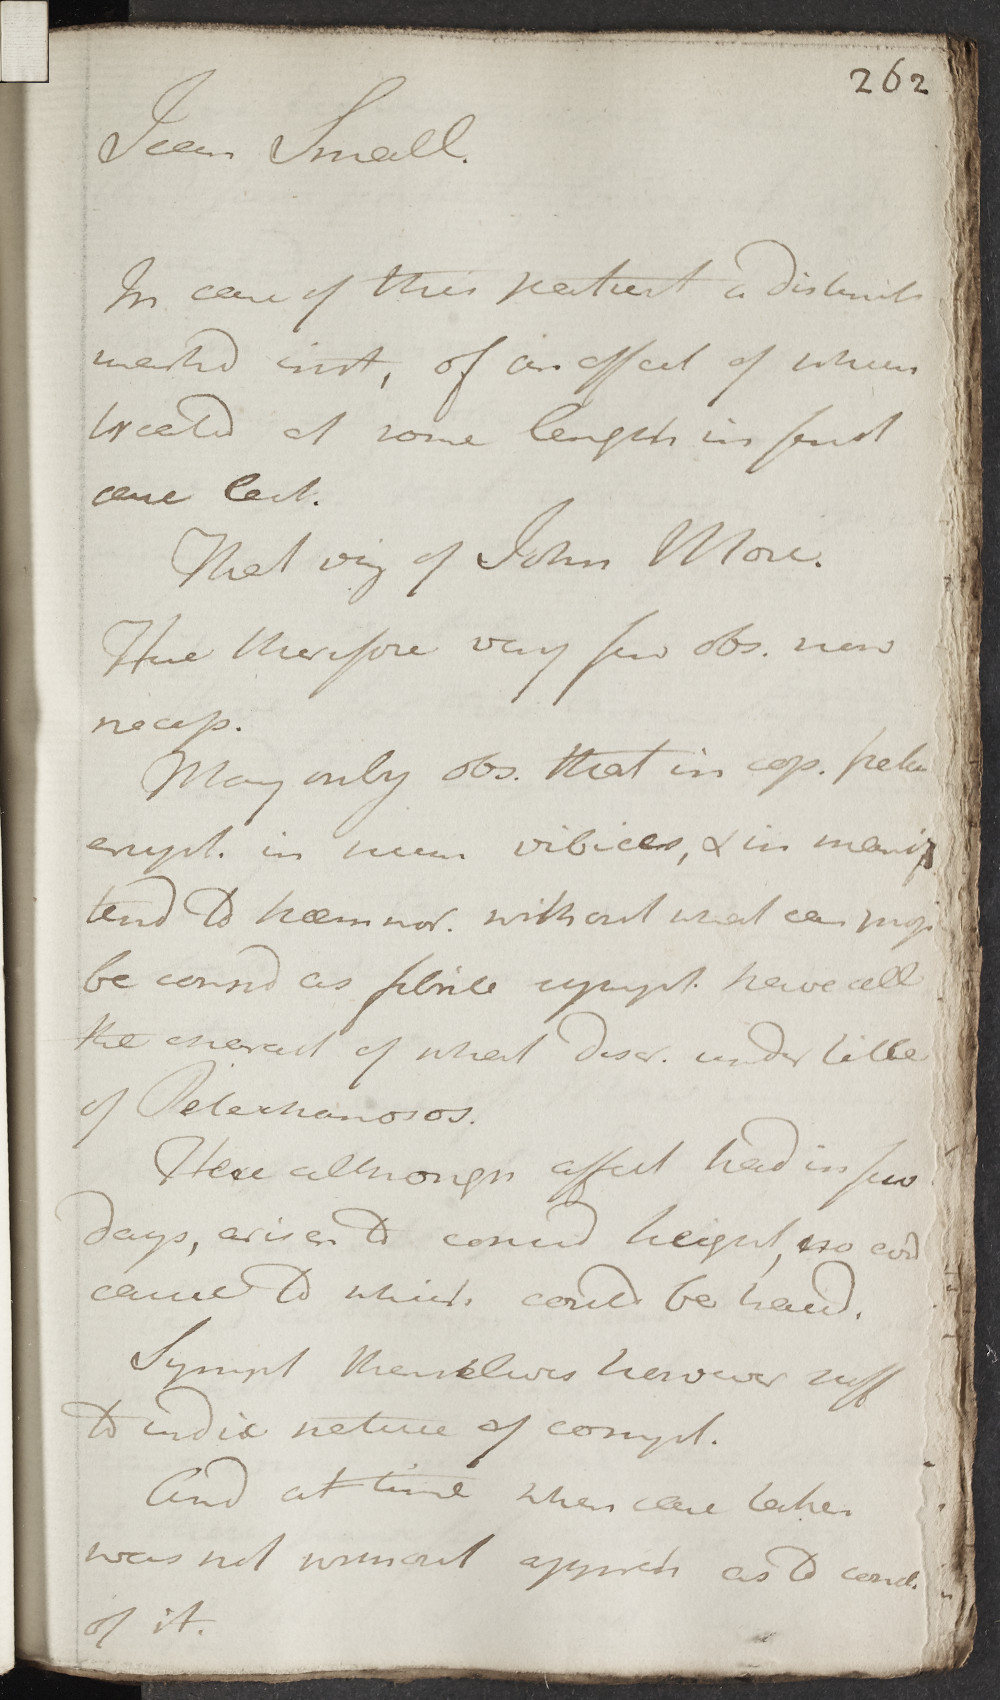 262
Jean Small.
In case of this patient a distinct
markd inst, of an affect of whicn
treated at some length in first
case lect.
That viz of John More.
Hae therefore very few obs. now
necess.
May only obs. that in cop. pete
erupt. in num vibices, & in manif
tend to haemor. without what can prop
be consd as febrile sympt. have all
the charact of what descr. under title
of Petechianosos.
Here although affect had in few
days, arisen to consid height, no evid
cause to which could be had.
Sympt themselves however suff
to indic nature of compl.
And at time when case taken
was not without appreh as to concl.
of it.